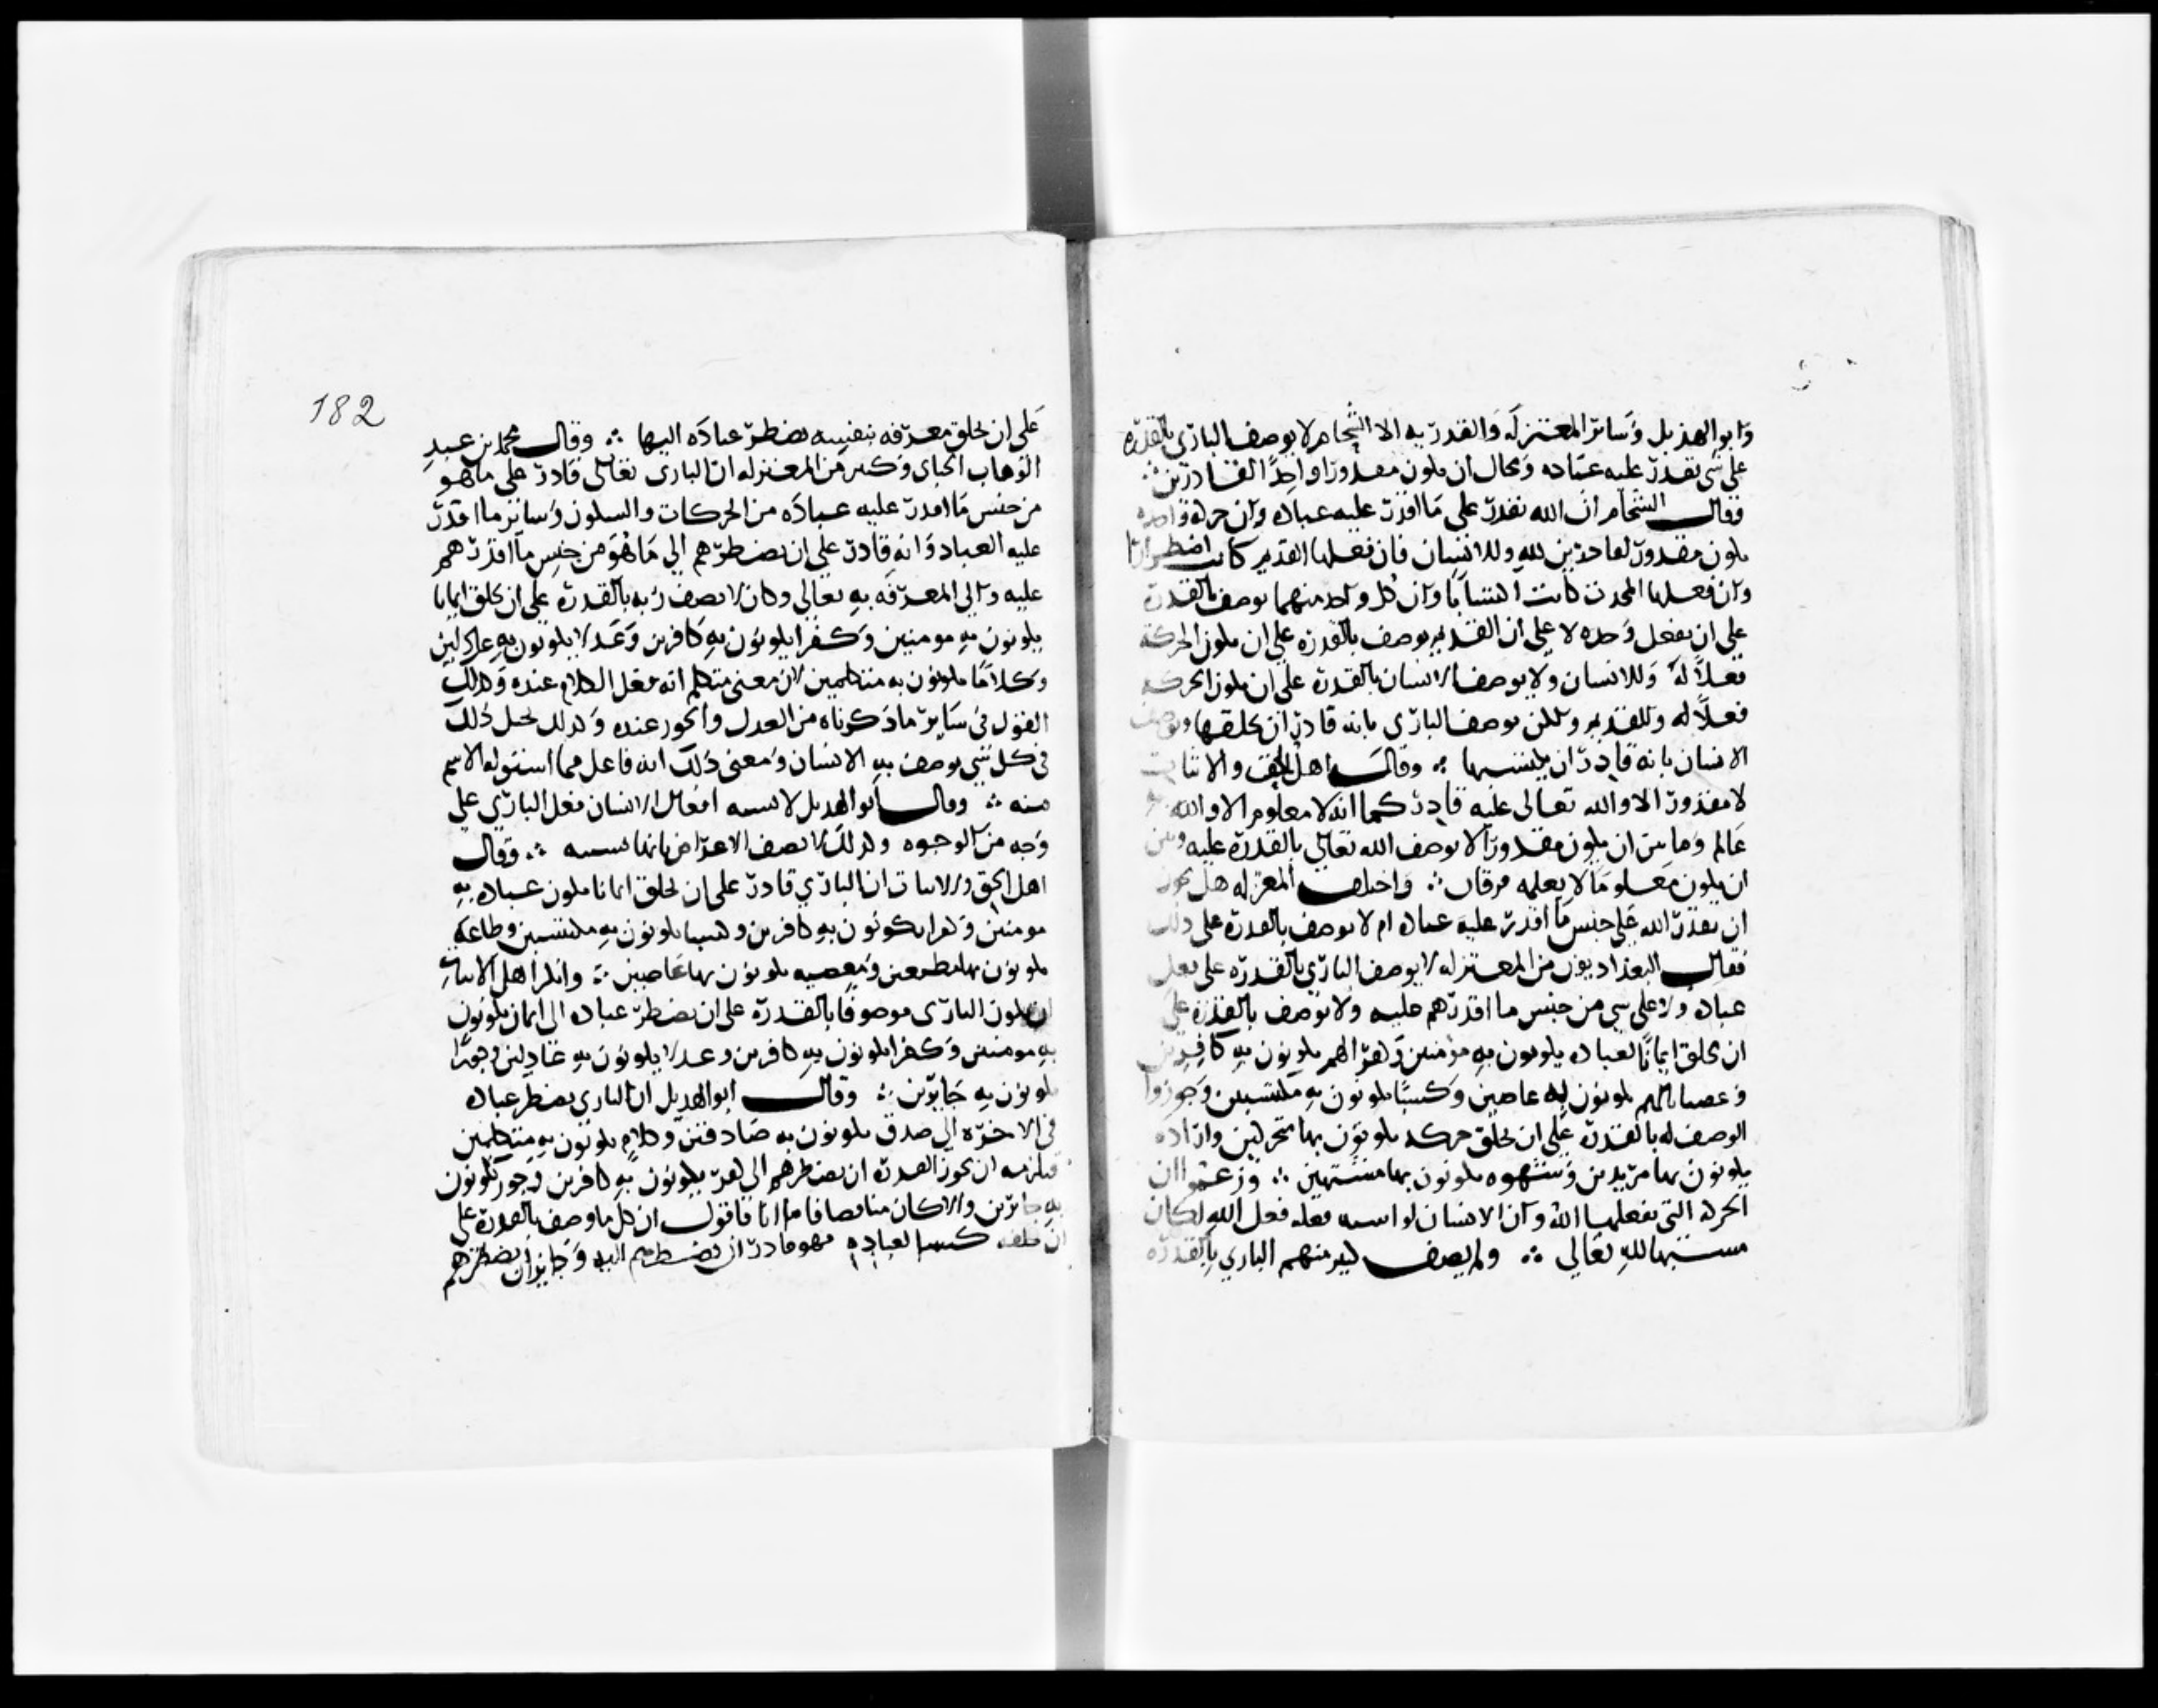 وابو الهذيل وسائر المعتزلة والقدرية الا الشحام لا يوصف الباري بالقدرة
على شي يقدر عليه عباده ومحال ان يكون مقدورا واحدا لقادرين ∴
فقال الشحام ان الله يقدر على ما اقدر عليه عباده وان حركة واحدة
يكون مقدورة لقادرين لله وللانسان فان فعلها القديم كانت اضطرارا
وان فعلها المحدث كانت اكتسابا وان كل واحد منهما يوصف بالقدرة
على ان يفعل وحده لا على ان القديم يوصف بالقدرة على ان يكون الحركة
فعلا له وللانسان ولا يوصف الانسان بالقدرة على ان يكون الحركة
فعلا له وللقديم ولكن يوصف الباري بانه قادر ان يخلقها ويوصف
الانسان بانه قادر ان يكتسبها ∴ وقال اهل الحق والاثبات
لا مقدور الا والله تعالى عليه قادر كما انه لا معلوم الا والله به
عالم وما بين ان يكون مقدورا لا يوصف الله تعالى بالقدرة عليه وبين
ان يكون معلوما لا يعلمه فرقان ∴ واختلف المعتزله هل يجوز
ان يقدر الله على جنس ما اقدر عليه عباده ام لا يوصف بالقدرة على ذلك
فقال البغداديون من المعتزله لا يوصف الباري بالقدره على فعل
عباده ولا على شي من جنس ما اقدرهم عليه ولا يوصف بالقدرة على
ان يخلق ايمانا لعباده يكونون به مؤمنين وكفرا لهم يكونون به كافرين
وعصيانا لهم يكونون به عاصين وكسبا يكونون به مكتسبين وجوزوا
الوصف له بالقدرة على ان يخلق حركه يكونون بها متحركين واراده
يكونون بها مريدين وشهوه يكونون بها مشتهين ∴ وزعموا ان
الحركة التي يفعلها الله وان الانسان لو اشبه فعله فعل الله لكان
مشبها لله تعالى ∴ ولم يصف كثير منهم الباري بالقدره
182
على ان يخلق معرفه بنفسه يضطر عباده اليها ∴ وقال محمد بن عبد
الوهاب الجباى وكثير من المعتزله ان البارى تعالى قادر على ما هو
من جنس ما اقدر عليه عباده من الحركات والسكون وسائر ما اقدر
عليه العباد وانه قادر على ان يضطرهم الى ما هو من جنس ما اقدرهم
عليه والى المعرفة به تعالى وكان لا يصف ربه بالقدرة على ان يخلق ايمانا
يكونون به مومنين وكفرا يكونون به كافرين وعدلا يكونون به عادلين
وكلاما يكونون به متكلمين لان معنى متكلم انه فعل الكلام عنده وكذلك
القول في سائر ما ذكرناه من العدل والجور عنده وكذلك يحيل ذلك
في كل شي يوصف به الانسان ومعنى ذلك انه فاعل مما اشتق له الاسم
منه ∴ وقال ابو الهذيل لا يشبه افعال الانسان فعل الباري على
وجه من الوجوه وكذلك لا يصف الاعراض بانها تشبه ∴ وقال
اهل الحق والاثبات ان الباري قادر على ان يخلق ايمانا يكون عباده به
مومنين وكفرا يكونون به كافرين وكسبا يكونون به مكتسبين وطاعة
يكونون بها مطيعين ومعصيه يكونون بها عاصين ∴ وانكر اهل الاثبات
ان يكون البارى موصوفا بالقدرة على ان يضطر عباده الى ايمان يكونون
به مومنين وكفرا يكونون به كافرين وعدلا يكونون به عادلين وجورا
يكونون به جايرين ∴ وقال ابو الهذيل ان الباري يضطر عباده
في الاخره الى صدق يكونون به صادقين وكلام يكونون به متكلمين
فيلزمه ان يجوز القدرة ان يضطرهم الى كفر يكونون به كافرين وجور يكونون
به جائرين والا كان مناقضا فاما انا فاقول ان كل ما وصف بالقدرة على
ان يخلقه كسبا لعباده فهو قادر ان يضطرهم اليه وجايز ان يضطرهم